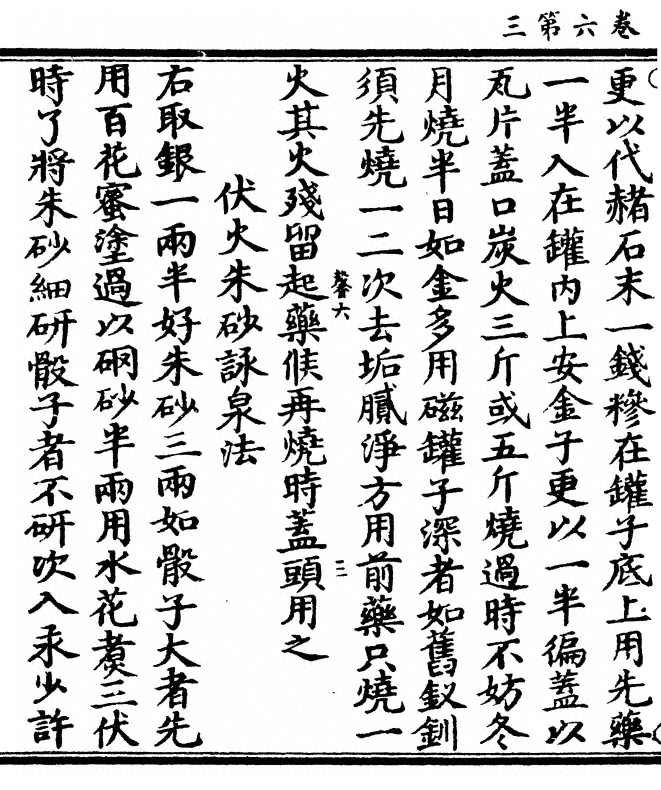 卷六第三
更以代赭石末一錢糝在罐子底上用先藥
一半入在罐內上安金子更以一半徧蓋以
瓦片蓋口炭火三斤或五斤燒過時不妨冬
月燒半日如金多用磁罐子深者如舊釵釧
須先燒一二次去垢膩淨方用前藥只燒一
馨六
三
火其火殘留起藥候再燒時蓋頭用之
伏火朱砂詠泉法
右取銀一兩半好朱砂三兩如骰子大者先
用百花蜜塗過以硇砂半兩用水花煑三伏
時了將朱砂細研骰子者不研次入汞少許